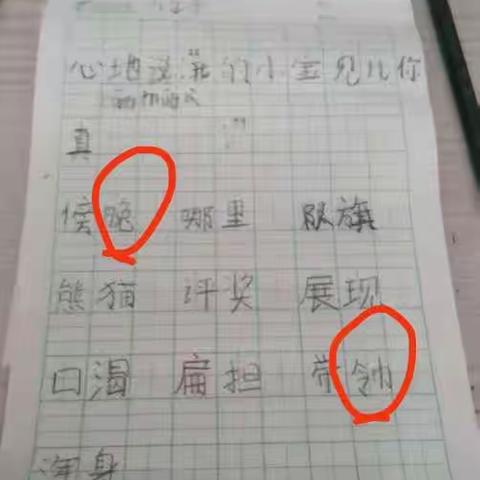 心地说:“我的小宝贝儿你
真
傍晚 哪里 队旗
熊猫 评奖 展现
口渴 扁担 带
浑身